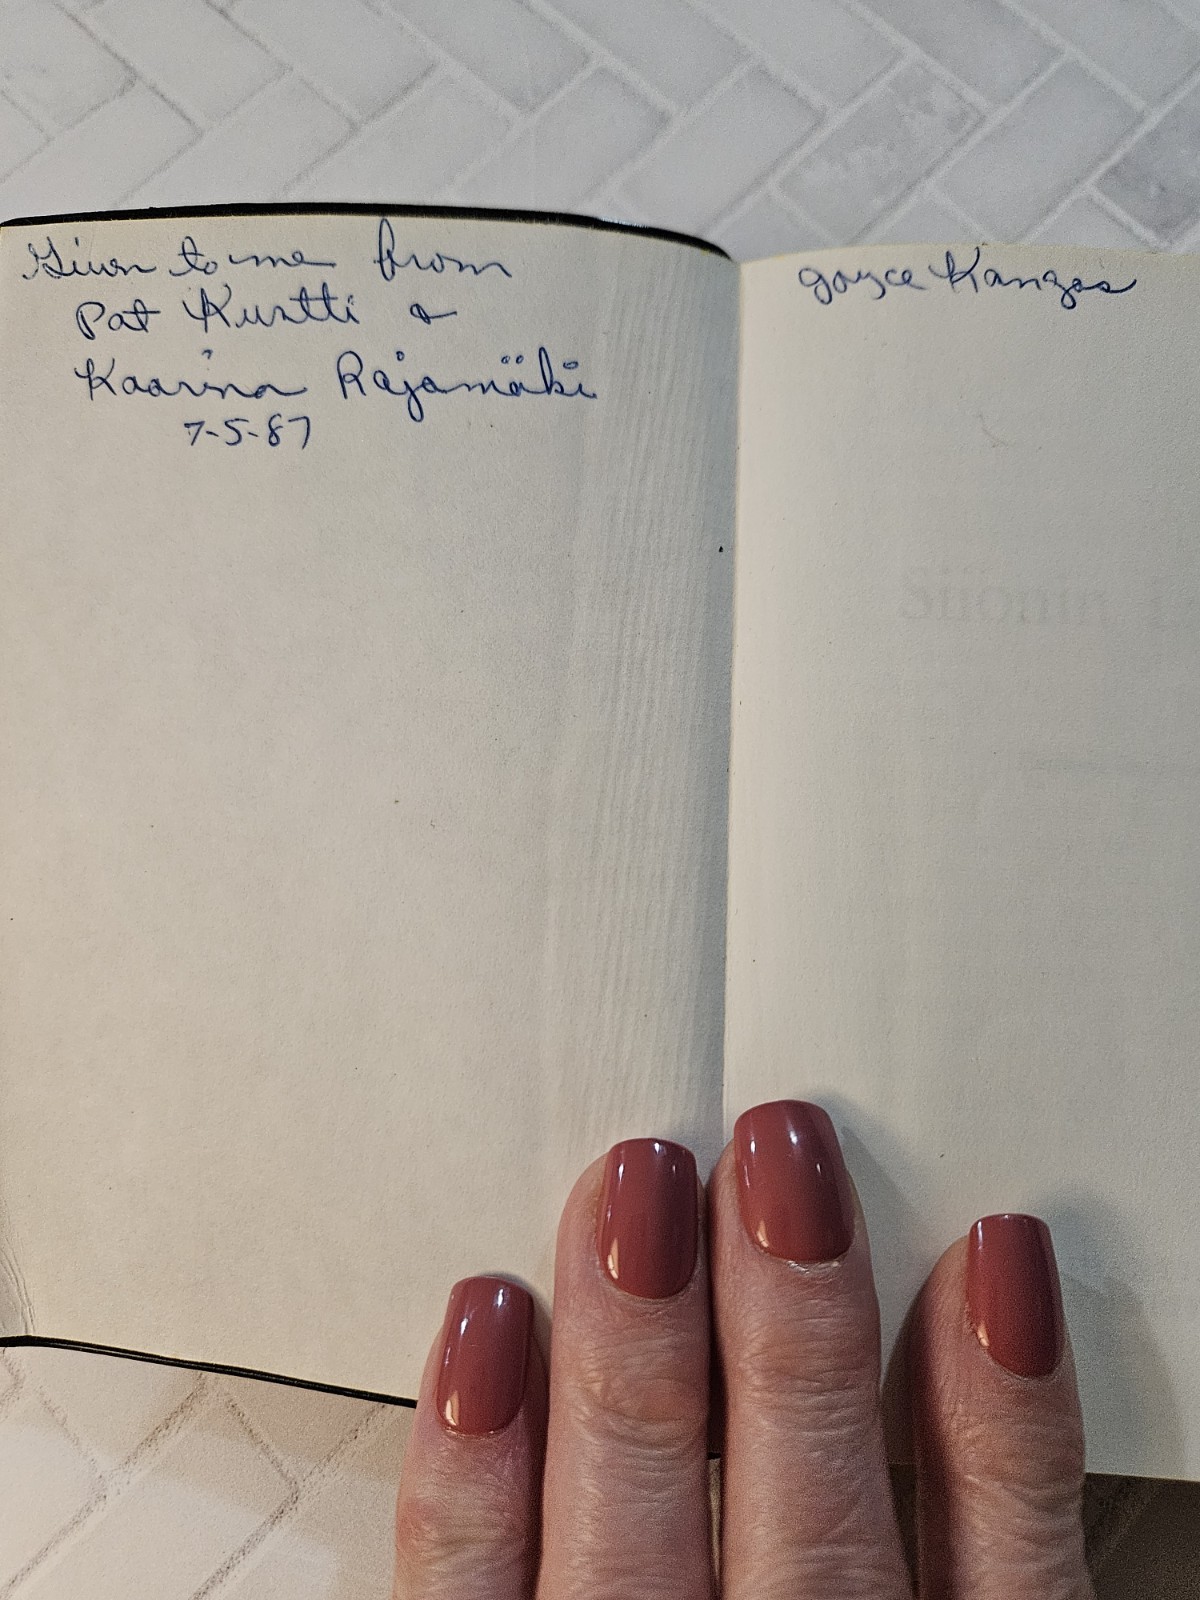 Given to me from
Pat Kurtti &
Kaarina Rajamäki
7-5-87
Joyce Kangas